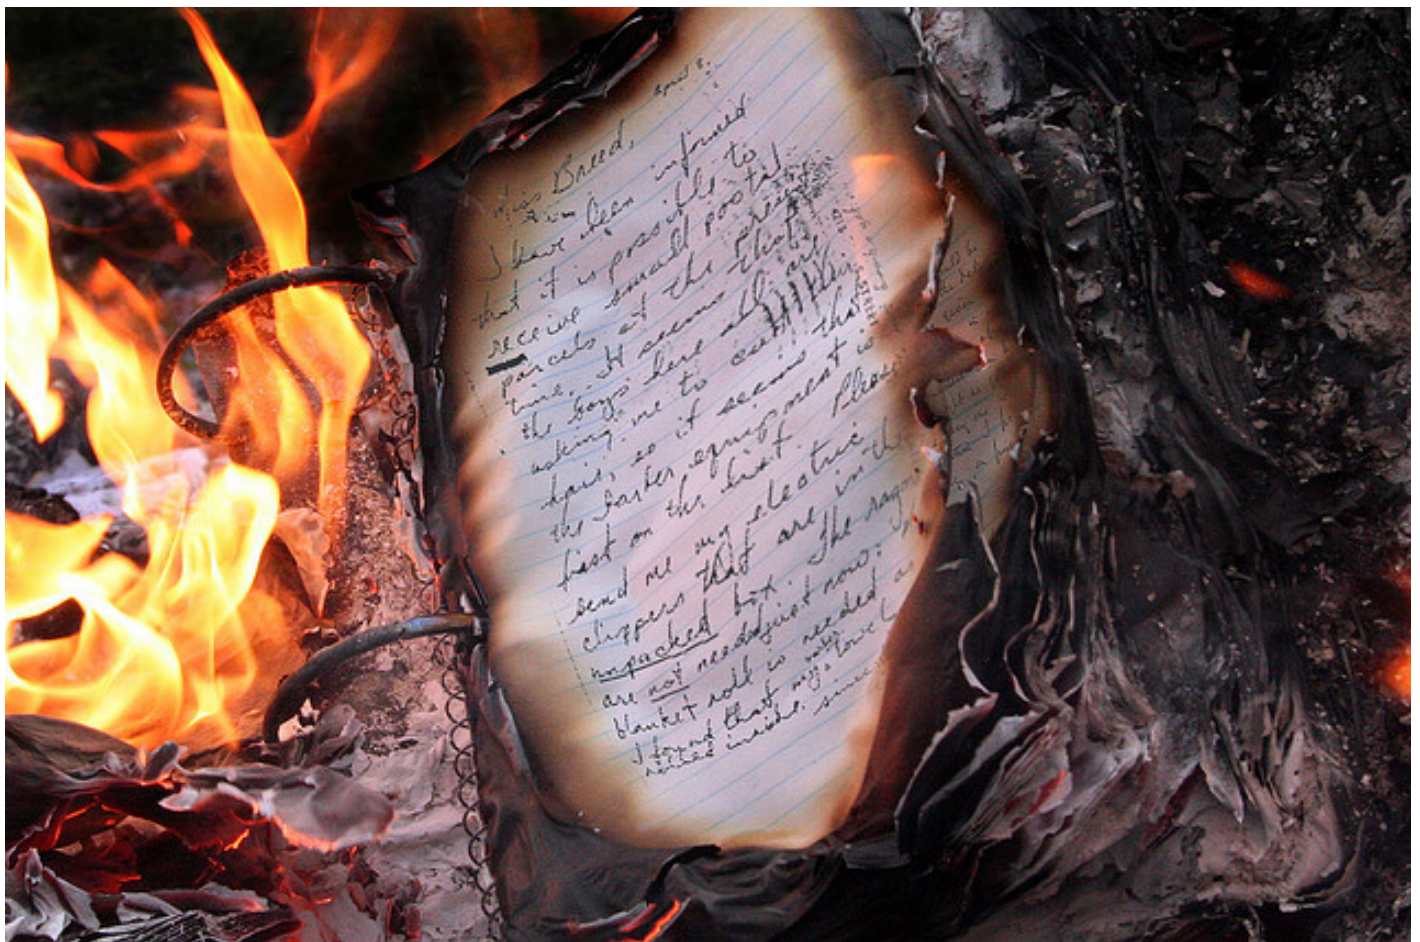 april 8,
Miss Breed,
I have been informed
that it is possible to
receive small postal
parcels at the present
time. It seems that
the boys here all are
asking me to cut their
hair, so it seems that
the barber equipment is
first on the list. Please
send me my electric
clippers that are in the
unpacked box. The
are not needed just now.
blanket roll is needed as
I found that my towel
inside. since